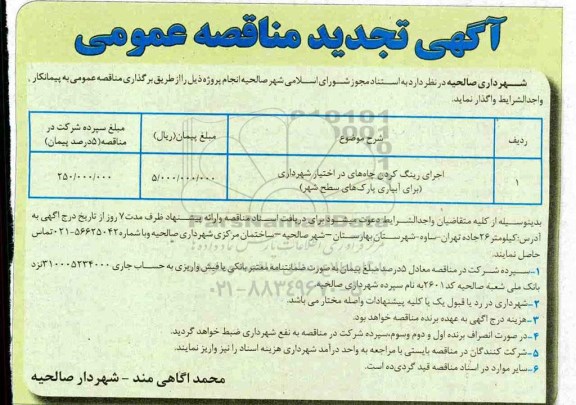 آگهی تجدید مناقصه عمومی
شهرداری صالحیه در نظر دارد به استناد مجوز شورای اسلامی شهر صالحیه انجام پروژه ذیل را از طریق برگذاری مناقصه عمومی به پیمانکار
واجدالشرایط واگذار نماید.
ردیف شرح موضوع مبلغ پیمان(ریال) مبلغ سپرده شرکت در
مناقصه(۵درصد پیمان)
۱ اجرای رینگ کردن چاه‌های در اختیار شهرداری
(برای آبیاری پارک‌های سطح شهر) ۵/۰۰۰/۰۰۰/۰۰۰ ۲۵۰/۰۰۰/۰۰۰
بدینوسیله از کلیه متقاضیان واجدالشرایط دعوت می‌شود برای دریافت اسناد مناقصه وارائه پیشنهاد ظرف مدت ۷ روز از تاریخ درج آگهی به
آدرس:کیلومتر۲۶جاده تهران-ساوه-شهرستان بهارستان-شهر صالحیه-ساختمان مرکزی شهرداری صالحیه وبا شماره ۵۶۶۲۵۰۴۲-۰۲۱تماس
حاصل نمایند.
۱-سپرده شرکت در مناقصه معادل ۵درصد مبلغ پیمان به صورت ضمانتنامه معتبر بانکی یا فیش واریزی به حساب جاری ۳۱۰۰۰۵۲۳۴۰۰۰نزد
بانک ملی شعبه صالحیه کد۲۶۰۱به نام سپرده شهرداری صالحیه
۲-شهرداری در رد یا قبول یک یا کلیه پیشنهادات واصله مختار می باشد.
۳-هزینه درج آگهی به عهده برنده مناقصه خواهد بود.
۴-در صورت انصراف برنده اول و دوم وسوم،سپرده شرکت در مناقصه به نفع شهرداری ضبط خواهد گردید.
۵-شرکت کنندگان در مناقصه بایستی با مراجعه به واحد درآمد شهرداری هزینه اسناد را نیز واریز نمایند.
۶-سایر موارد در اسناد مناقصه قید گردیده است.
محمد اگاهی مند - شهردار صالحیه
ParsNamadData
۰۲۱-۸۸۳۴۹۶